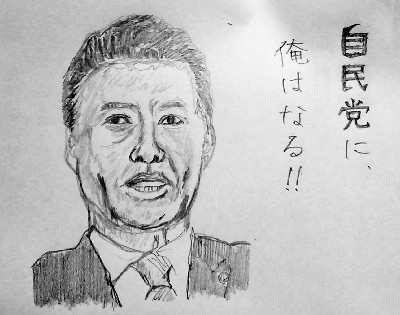 自民党に、
俺はなる!!